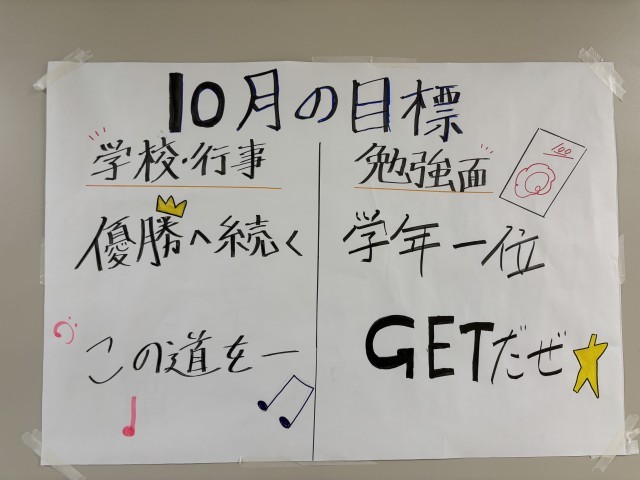 10月の目標
学校・行事
優勝へ続く
この道を一
勉強面
100
学年一位
GETだぜ